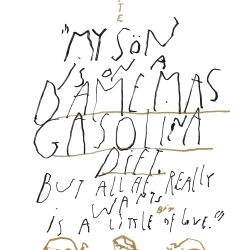 "MY SÖN
IS ON A
DAMEMAS
GASOLINA
DIET.
BUT ALL HE REALLY
WANTS
IS A LITTLE BIT OF LOVE."